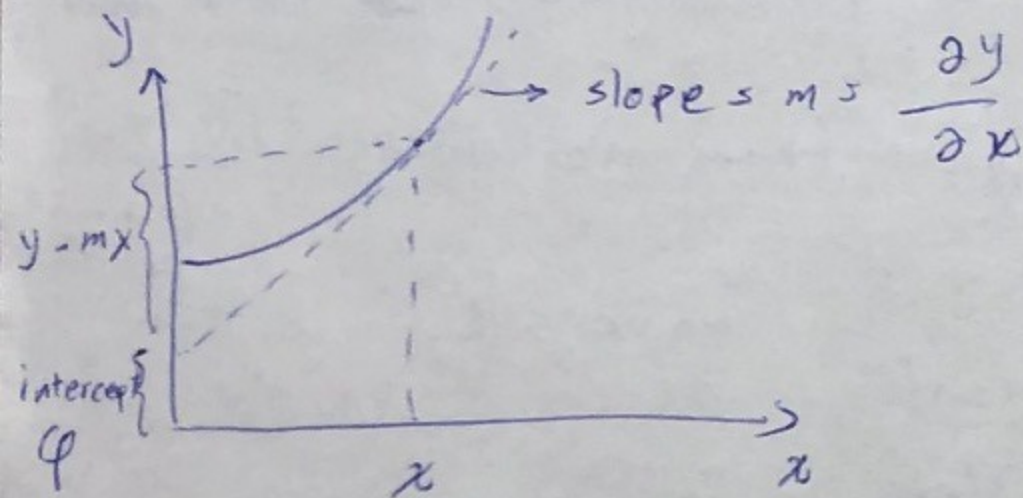 y
slope = m = ∂y/∂x
y - mx
intercept
φ
x
x